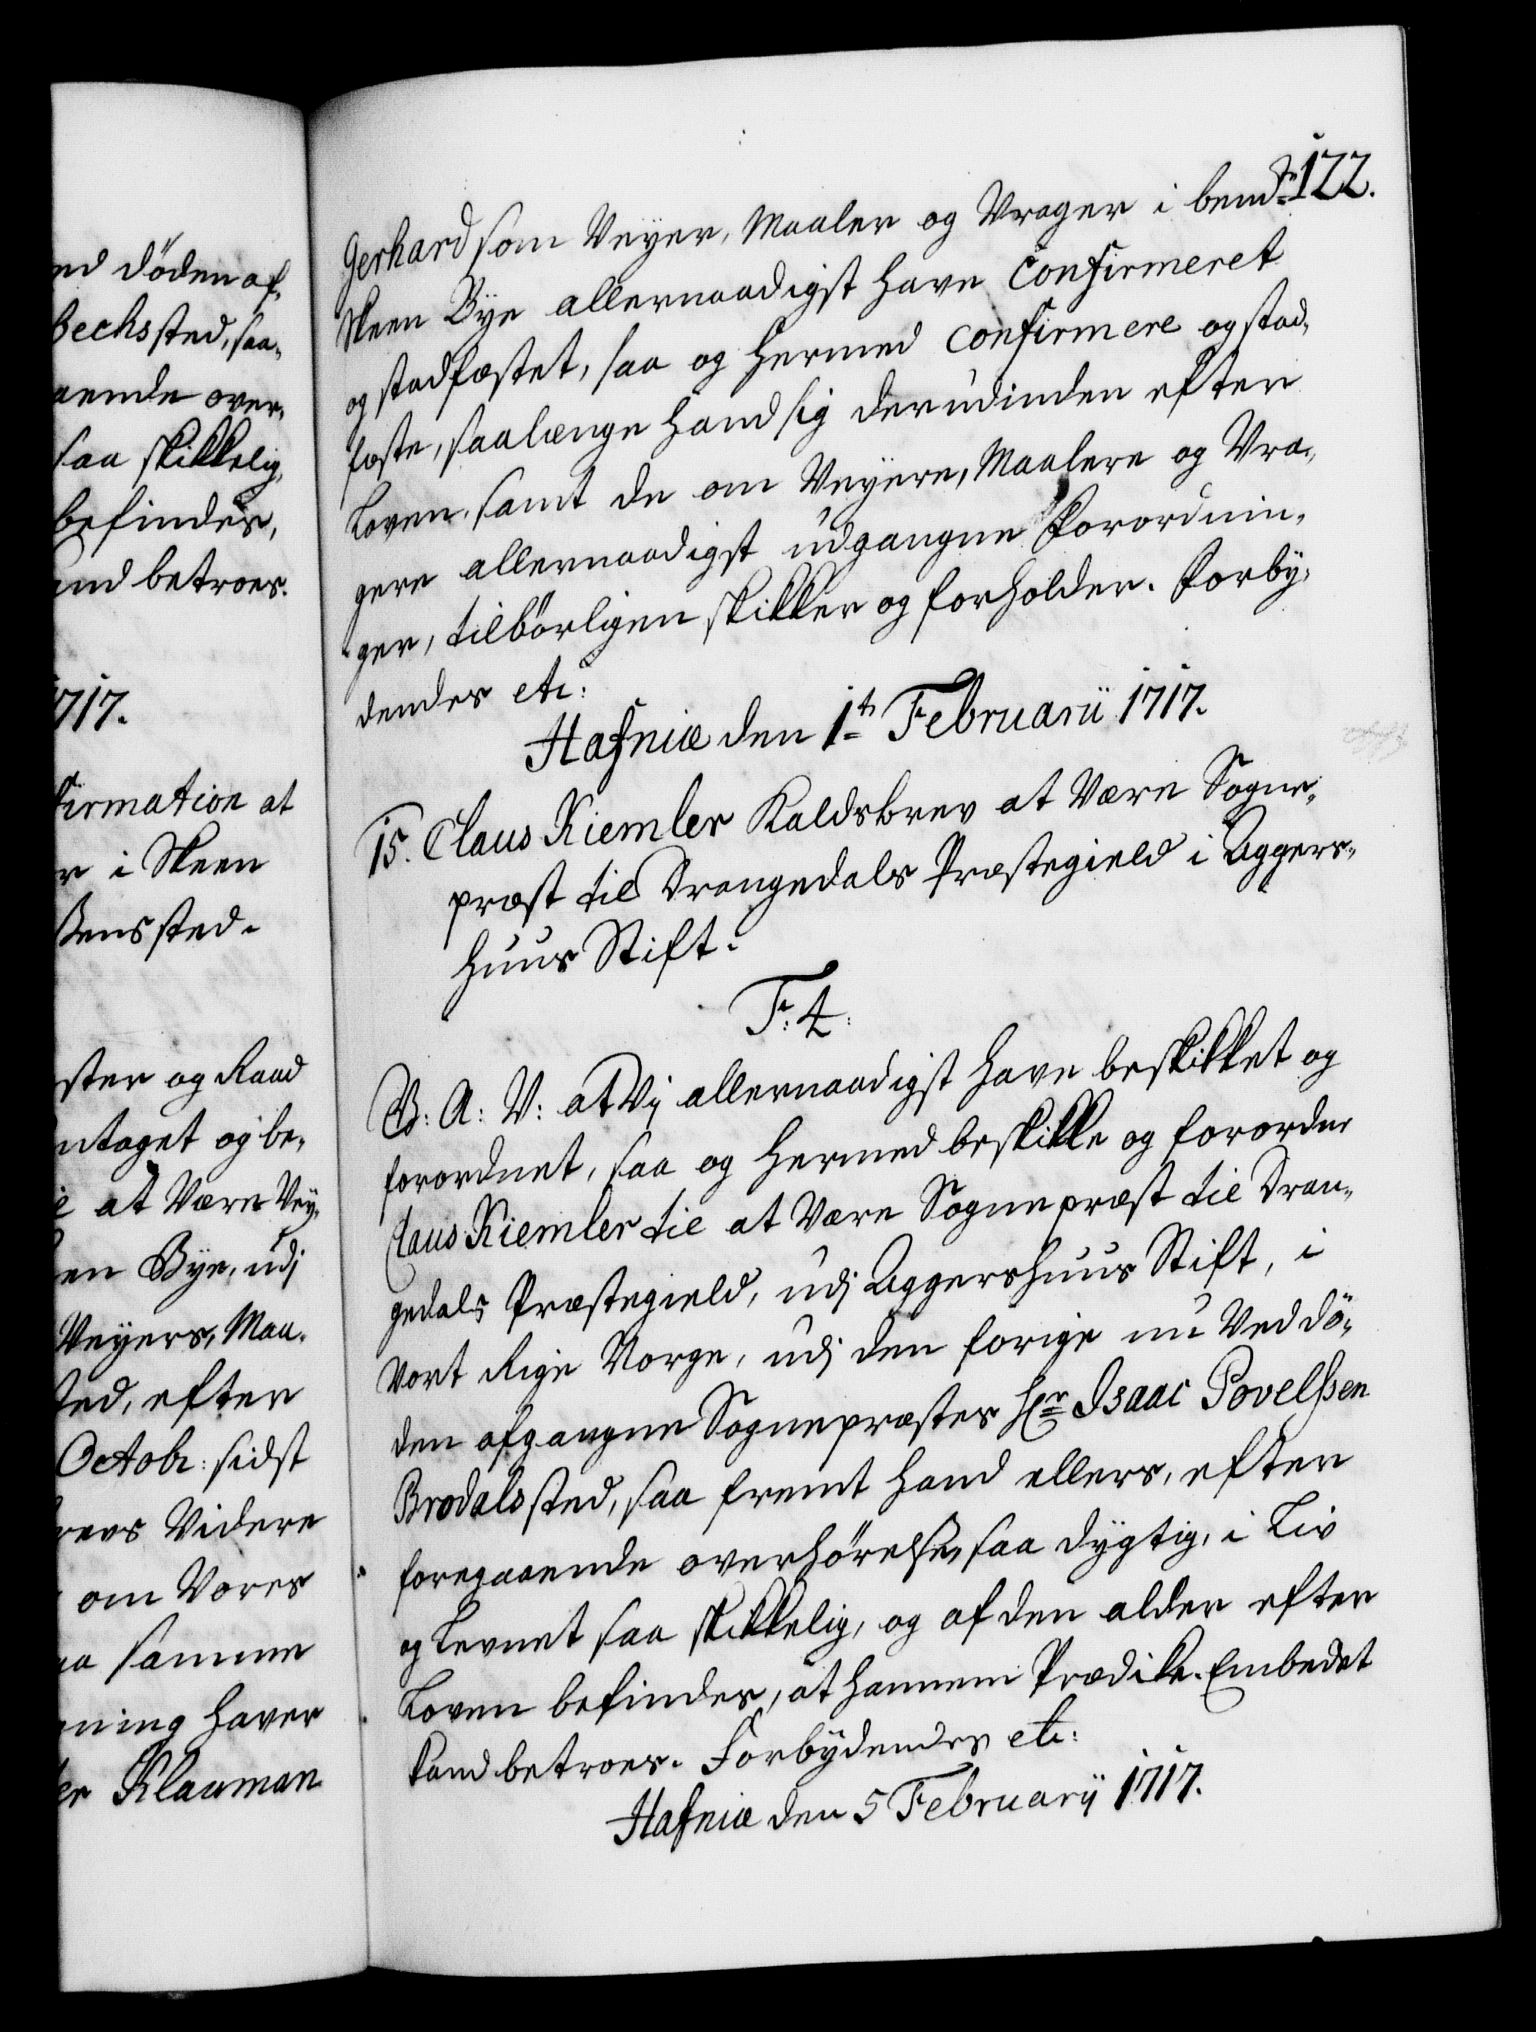 ed döden af-
bechs sted, saa-
aaende over-
saa skikkelig,
befindes,
and betroes.
1717.
firmation at
r i Skeen
ßens sted.
ster og Raad
ntaget og be-
at Være Vey-
en Bye, udj
Veyers, Maa-
sted, efter
Octobr: sidst
revs Videre
om Vores
aa samme
ning haver
er Klauman
122.
Gerhard som Veyer, Maaler og Vrager i bemte
Skeen Bye allernaadigst have Confirmeret
og stadfæstet, saa og hermed confirmere og stad-
fæste, saalænge hand sig derudinden efter
Loven, samt de om Veyere, Maalere og Vra-
gere allernaadigst udgangne Forordnin-
ger, tilbörligen skikker og forholder. Forby-
dendes etc:
Hafniæ den 1te Februarii 1717.
15. Claus Kiemler Kaldsbrev at Være Sogne-
præst til Drangedals Præstegield i Aggers-
huus Stift.
F: 4:
G: A: V: at Vj allernaadigst have beskikket og
forordnet, saa og hermed beskikke og forordne
Claus Kiemler til at Være Sognepræst til Dran-
gedals Præstegield, udj Aggershuus Stift, i
Vort Rige Norge, udj den forige nu Ved dö-
den afgangne Sognepræstes Hr Isaac Povelßen
Brodals sted, saa fremt hand ellers, efter
foregaaende overhörelse, saa dygtig, i Liv
og Levnet saa skikkelig, og af den alder efter
Loven befindes, at hannem Prædike-Embedet
kand betroes. Forbydendes etc:
Hafniæ den 5 Februarij 1717.